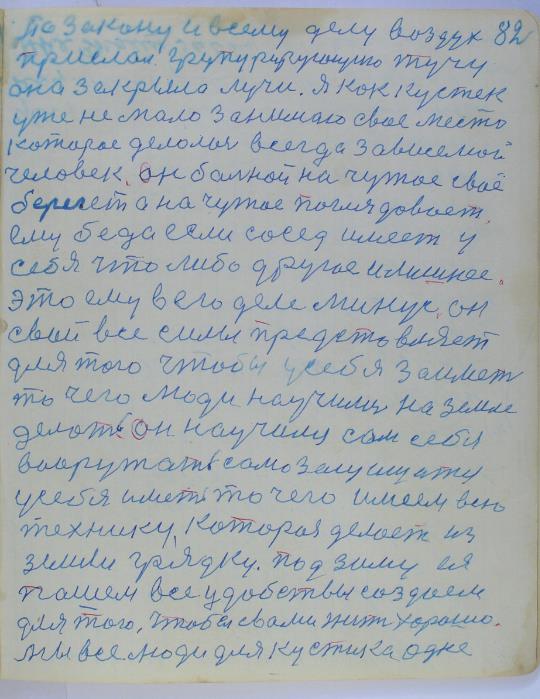 По закону и всему делу воздух 82
прислал групирующую тучу
она закрыла лучи. я как кустек
уже не мало занимаю свое место
которое делолся всегда зависемой
человек. он балной на чужое своё
берегет а на чужое поглядовает.
ему беда если сосед имеет у
себя что либо другое илишнее.
это ему в его деле минус. он
свои все силы предстовляет
для того чтобы усебя заимет
то чего люди научилис на земле
делат. Он научился сам себя
вооружатся самозащищатся
усебя имет то чего имеем всю
технику, которая делает из
земли грядку. под зиму ея
пашем все удобствы создаем
для того, чтобы свами жит хорошо.
мы все люди для кустика одне